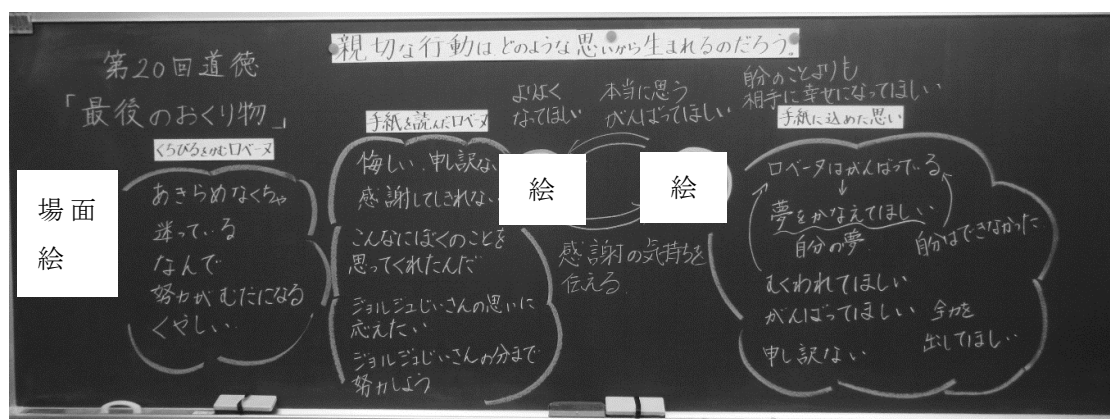 親切な行動は、どのような思いから生まれるのだろう。
第20回道徳
「最後のおくり物」
くちびるをかむロベーヌ
場面
絵
あきらめなくちゃ
迷っている
なんで
努力がむだになる
くやしい…
手紙を読んだロベーヌ
悔しい 申し訳ない
感謝してしきれない
こんなにぼくのことを
思ってくれたんだ
ジョルジュじいさんの思いに
応えたい
ジョルジュじいさんの分まで
努力しよう
よりよく
なってほしい
本当に思う
がんばってほしい
絵
絵
感謝の気持ちを
伝える
自分のことよりも
相手に幸せになってほしい
手紙に込めた思い
ロベータはがんばっている
夢をかなえてほしい
自分の夢
自分はできなかった
むくわれてほしい
がんばってほしい
全力を
出してほしい
申し訳ない